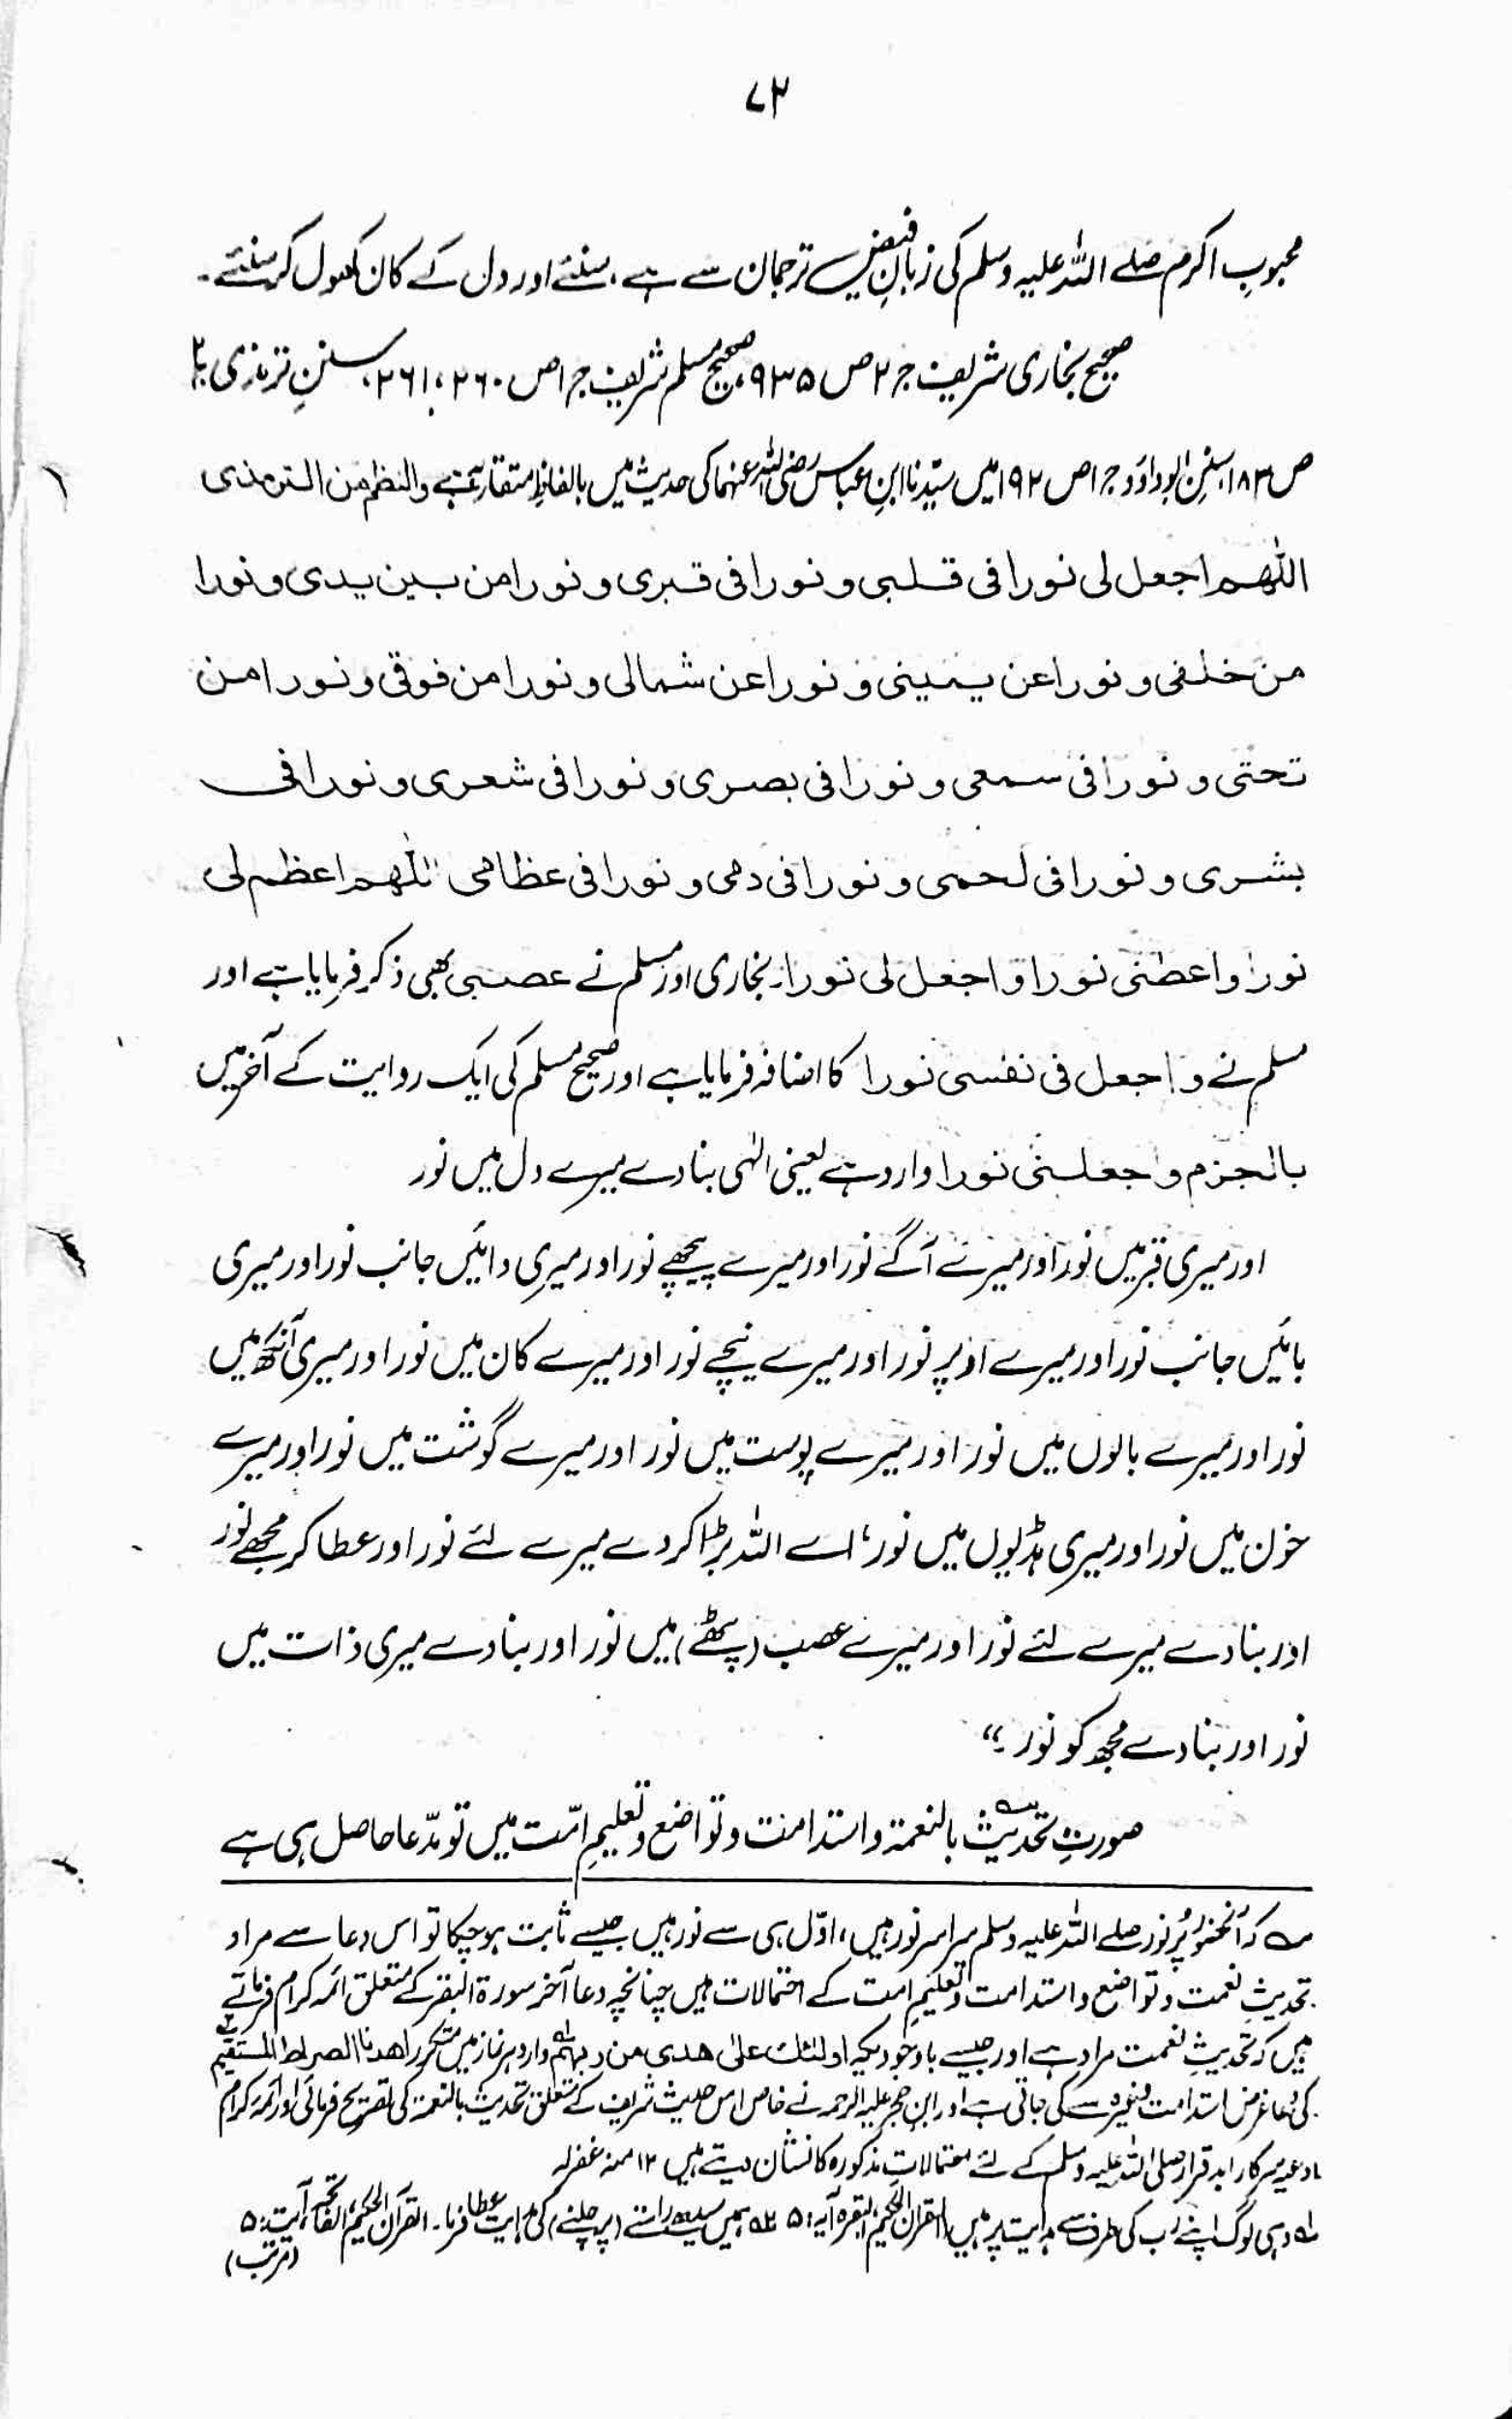 ۷۲
محبوبِ اکرم صلے اللہ علیہ وسلم کی زبانِ فیض ترجمان سے ہے، سنئے اور دل کے کان کھول کر سنئے۔
صحیح بخاری شریف جر ۲ ص ۹۳۵، صحیح مسلم شریف جر ۱ ص ۲۶۰، ۲۶۱، سننِ ترمذی
ص ۱۸۳، سننِ ابوداؤد جر ۱ ص ۱۹۲ میں سیّدنا ابنِ عباس رضی اللہ عنہما کی حدیث میں بالفاظِ متقاربہ ہے والنظم من الترمذی
اللٰھم اجعل لی نورا فی قلبی و نورا فی قبری و نورا من بین یدی و نورا
من خلفی و نورا عن یمینی و نورا عن شمالی و نورا من فوقی و نورا من
تحتی و نورا فی سمعی و نورا فی بصری و نورا فی شعری و نورا فی
بشری و نورا فی لحمی و نورا فی دمی و نورا فی عظامی اللٰھم اعظم لی
نورا و اعطنی نورا و اجعل لی نورا۔ بخاری اور مسلم نے عصبی بھی ذکر فرمایا ہے اور
مسلم نے و اجعل فی نفسی نورا کا اضافہ فرمایا ہے اور صحیح مسلم کی ایک روایت کے آخر میں
بالجزم و اجعلنی نورا وارد ہے یعنی الٰہی بنا دے میرے دل میں نور
اور میری قبر میں نور اور میرے آگے نور اور میرے پیچھے نور اور میری دائیں جانب نور اور میری
بائیں جانب نور اور میرے اوپر نور اور میرے نیچے نور اور میرے کان میں نور اور میری آنکھ میں
نور اور میرے بالوں میں نور اور میرے پوست میں نور اور میرے گوشت میں نور اور میرے
خون میں نور اور میری ہڈیوں میں نور، اے اللہ بڑا کر دے میرے لئے نور اور عطا کر مجھے نور
اور بنا دے میرے لئے نور اور میرے عصب (پٹھے) میں نور اور بنا دے میری ذات میں
نور اور بنا دے مجھ کو نور۔"
صورتِ تحدیث بالنعمۃ و استدامت و تواضع و تعلیمِ امّت میں تو مدّعا حاصل ہی ہے
؎ کہ آنحضور پُر نور صلے اللہ علیہ وسلم سراسر نور ہیں، اوّل ہی سے نور ہیں جیسے ثابت ہو چکا تو اس دعا سے مراد
تحدیثِ نعمت و تواضع و استدامت و تعلیمِ امت کے احتمالات ہیں چنانچہ دعا آخر سورۃ البقر کے متعلق ائمہ کرام فرماتے
ہیں کہ تحدیثِ نعمت مراد ہے اور جیسے باوجودیکہ اولئک علیٰ ھدی من ربہم وارد ہر نماز میں مکرر اھدنا الصراط المستقیم
کی دعا غرض استدامت وغیرہ سے کی جاتی ہے اور ابنِ حجر علیہ الرحمہ نے خاص اس حدیث شریف کے متعلق تحدیث بالنعمۃ کی تصریح فرمائی اور ائمہ کرام
ادعیہ سرکار ابد قرار صلی اللہ علیہ وسلم کے لئے احتمالاتِ مذکورہ کا نشان دیتے ہیں ۱۲ منہ غفرلہ
؎۱ وہی لوگ اپنے رب کی طرف سے ہدایت پر ہیں، القرآن الحکیم، البقرہ آیۃ: ۵ ؎۲ ہمیں سیدھے راستے (پر چلنے) کی ہدایت عطا فرما۔ القرآن الحکیم، الفاتحہ، آیت: ۵
(مرتب)